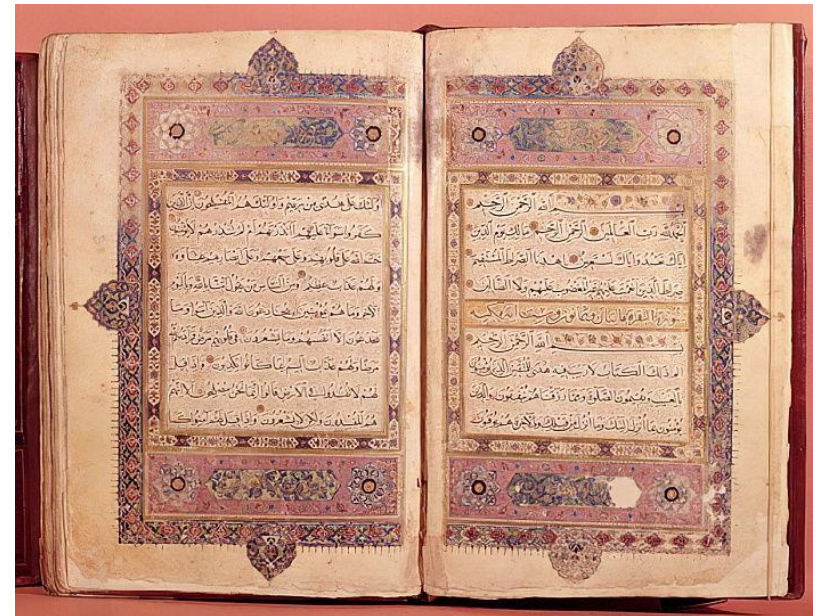 بسم الله الرحمن الرحيم
الحمد لله رب العالمين الرحمن الرحيم مالك يوم الدين
اياك نعبد واياك نستعين اهدنا الصراط المستقيم
صراط الذين انعمت عليهم غير المغضوب عليهم ولا الضالين
سورة البقرة مائتان وثمانون وست اية
بسم الله الرحمن الرحيم
الم ذلك الكتاب لا ريب فيه هدى للمتقين الذين يؤمنون
بالغيب ويقيمون الصلوة ومما رزقناهم ينفقون والذين
يؤمنون بما انزل اليك وما انزل من قبلك وبالاخرة هم يوقنون
اولئك على هدى من ربهم واولئك هم المفلحون ان الذين
كفروا سواء عليهم ءانذرتهم ام لم تنذرهم لا يؤمنون
ختم الله على قلوبهم وعلى سمعهم وعلى ابصارهم غشاوة
ولهم عذاب عظيم ومن الناس من يقول امنا بالله وباليوم
الاخر وما هم بمؤمنين يخادعون الله والذين امنوا وما
يخدعون الا انفسهم وما يشعرون في قلوبهم مرض فزادهم الله
مرضا ولهم عذاب اليم بما كانوا يكذبون واذا قيل
لهم لا تفسدوا في الارض قالوا انما نحن مصلحون الا انهم
هم المفسدون ولكن لا يشعرون واذا قيل لهم امنوا كما